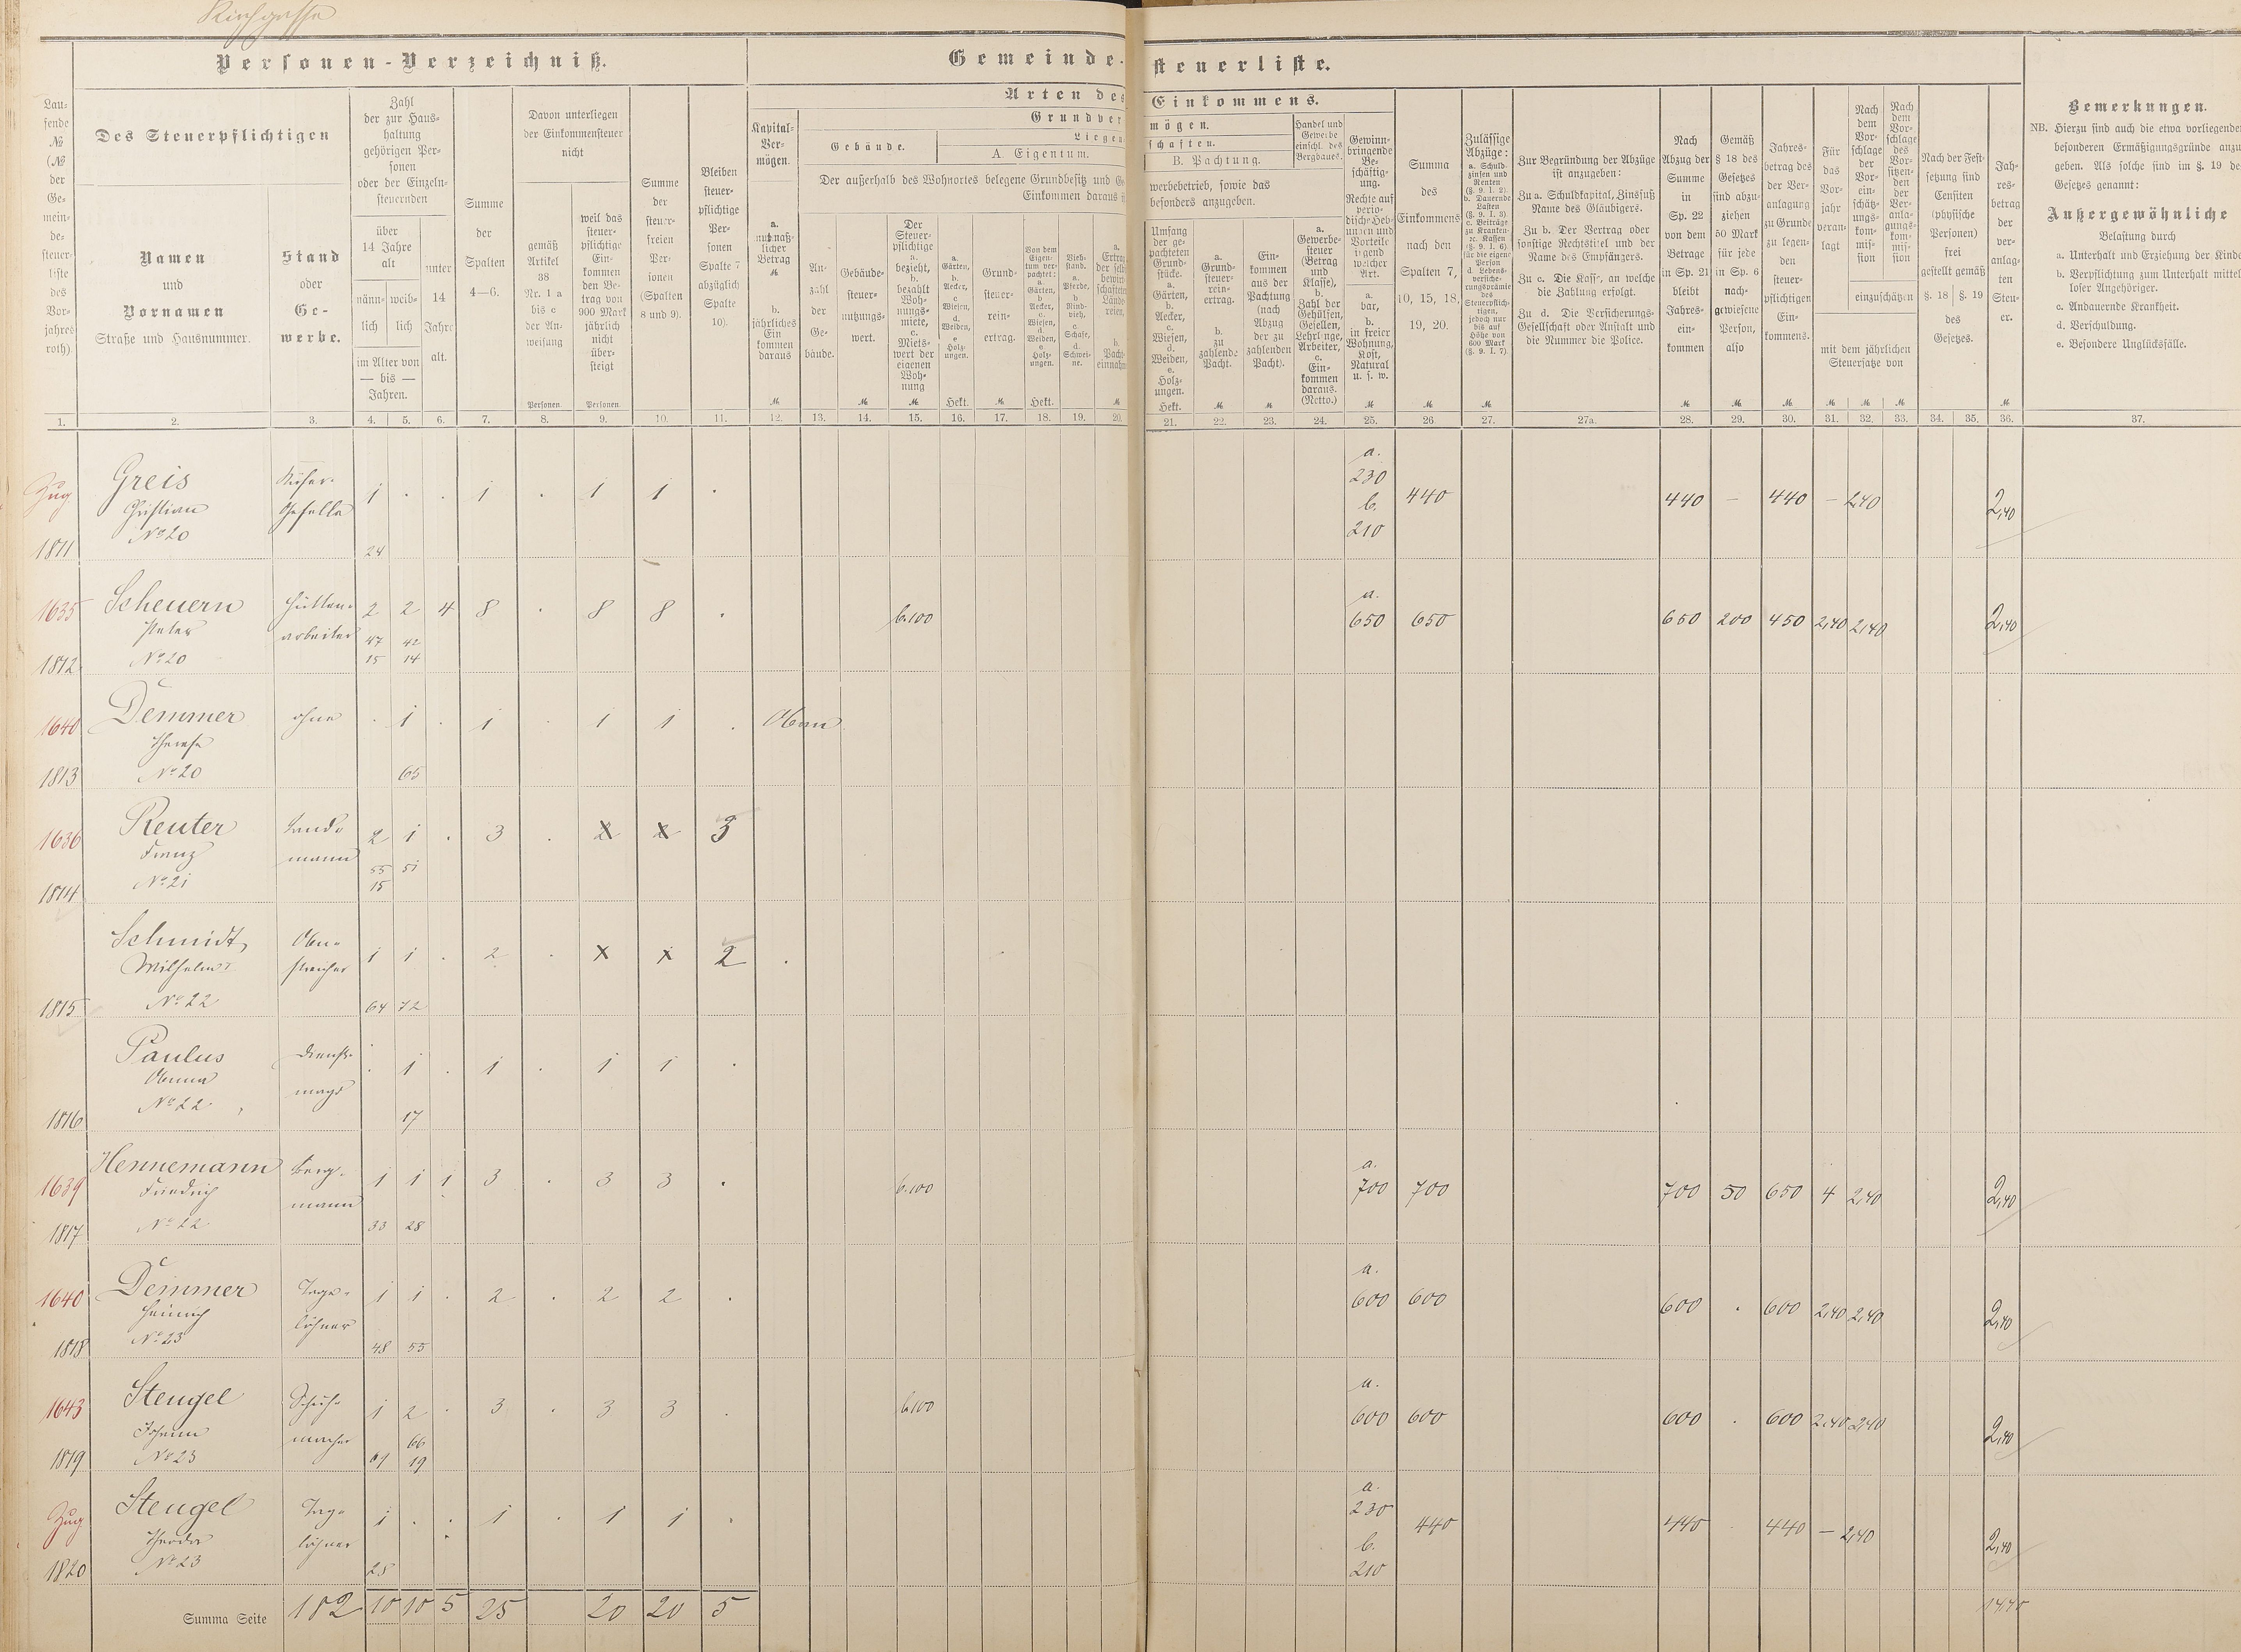 Kirchgasse
Personen-Verzeichniß.
Gemeinde-
steuerliste.
Arten des
Einkommens.
Grundver
mögen.
Liegen
schaften.
Lau-
fende
№
(№
der
Ge-
mein-
de-
steuer-
liste
des
Vor-
jahres
roth).
Des Steuerpflichtigen
Namen
und
Vornamen
Straße und Hausnummer.
Stand
oder
Ge-
werbe.
Zahl
der zur Haus-
haltung
gehörigen Per-
sonen
oder der Einzeln-
steuernden
über
14 Jahre
alt
männ-
lich
weib-
lich
im Alter von
— bis —
Jahren.
unter
14
Jahre
alt.
Summe
der
Spalten
4—6.
Davon unterliegen
der Einkommensteuer
nicht
gemäß
Artikel
38
Nr. 1 a
bis c
der An-
weisung
Personen.
weil das
steuer-
pflichtige
Ein-
kommen
den Be-
trag von
900 Mark
jährlich
nicht
über-
steigt
Personen.
Summe
der
steuer-
freien
Per-
sonen
(Spalten
8 und 9).
Bleiben
steuer-
pflichtige
Per-
sonen
Spalte 7
abzüglich
Spalte
10).
Kapital-
Ver-
mögen.
a.
muthmaß-
licher
Betrag
M
b.
jährliches
Ein
kommen
daraus
M
Gebäude.
A. Eigentum.
B. Pachtung.
Der außerhalb des Wohnortes belegene Grundbesitz und G
Einkommen daraus
werbebetrieb, sowie das
besonders anzugeben.
An-
zahl
der
Ge-
bäude.
Gebäude-
steuer-
nutzungs-
wert.
M
Der
Steuer-
pflichtige
a.
bezieht,
b.
bezahlt
Woh-
nungs-
miete,
c.
Miets-
wert der
eigenen
Woh-
nung
M
a.
Gärten,
b.
Aecker,
c
Wiesen,
d.
Weiden,
e
Holz-
ungen.
Hekt.
Grund-
steuer-
rein-
ertrag.
M
Von dem
Eigen-
tum ver-
pachtet:
a.
Gärten,
b
Aecker,
c.
Wiesen,
d
Weiden,
e
Holz-
ungen.
Hekt.
Vieh-
stand.
a.
Pferde,
b
Rind-
vieh,
c.
Schafe,
d.
Schwei-
ne.
Umfang
der ge-
pachteten
Grund-
stücke.
a.
Gärten,
b.
Aecker,
c.
Wiesen,
d.
Weiden,
e.
Holz-
ungen.
Hekt.
a.
Grund-
steuer-
rein-
ertrag.
b.
zu
zahlende
Pacht.
M
Ein-
kommen
aus der
Pachtung
(nach
Abzug
der zu
zahlenden
Pacht).
M
Handel und
Gewerbe
einschl. des
Bergbaues.
a.
Gewerbe-
steuer
(Betrag
und
Klasse),
b.
Zahl der
Gehülfen,
Gesellen,
Lehrlinge,
Arbeiter,
c.
Ein-
kommen
daraus.
(Netto.)
Gewinn-
bringende
Be-
schäftig-
ung.
Rechte auf
perio-
dische Heb-
ungen und
Vorteile
irgend
welcher
Art.
a.
bar,
b.
in freier
Wohnung,
Kost,
Natural
u. s. w.
M
Summa
des
Einkommens
nach den
Spalten 7,
10, 15, 18,
19, 20.
M
Zulässige
Abzüge:
a. Schuld-
zinsen und
Renten
(§. 9. I. 2).
b. Dauernde
Lasten
(§. 9. I. 3)
c. Beiträge
zu Kranken-
ꝛc. Kassen
(§. 9. I. 6).
für die eigene
Person
d. Lebens-
versiche-
rungsprämie
des
Steuerpflich-
tigen,
jedoch nur
bis auf
Höhe von
600 Mark
(§. 9. I. 7).
M
Zur Begründung der Abzüge
ist anzugeben:
Zu a. Schuldkapital, Zinsfuß
Name des Gläubigers.
Zu b. Der Vertrag oder
sonstige Rechtstitel und der
Name des Empfängers.
Zu c. Die Kasse, an welche
die Zahlung erfolgt.
Zu d. Die Versicherungs-
Gesellschaft oder Anstalt und
die Nummer die Police.
Nach
Abzug der
Summe
in
Sp. 22
von dem
Betrage
in Sp. 21
bleibt
Jahres-
ein-
kommen
M
Gemäß
§ 18 des
Gesetzes
sind abzu-
ziehen
50 Mark
für jede
in Sp. 6
nach-
gewiesene
Person,
also
M
Jahres-
betrag des
der Ver-
anlagung
zu Grunde
zu legen-
den
steuer-
pflichtigen
Ein-
kommens.
M
Für
das
Vor-
jahr
veran-
lagt
M
Nach
dem
Vor-
schlage
der
Vor-
ein-
schätz-
ungs-
kom-
mis-
sion
Nach
dem
Vor-
schlage
des
Vor-
sitzen-
den
der
Ver-
anla-
gungs-
kom-
mis-
sion
einzuschätzen
mit dem jährlichen
Steuersatze von
M M
Nach der Fest-
setzung sind
Censiten
(physische
Personen)
frei
gestellt gemäß
§. 18 § 19
des
Gesetzes.
Jah-
res-
betrag
der
ver-
anlag-
ten
Steu-
er.
M
Bemerkungen.
NB. Hierzu sind auch die etwa vorliegenden
besonderen Ermäßigungsgründe anzu
geben. Als solche sind im §. 19 de
Gesetzes genannt:
Außergewöhnliche
Belastung durch
a. Unterhalt und Erziehung der Kinde
b. Verpflichtung zum Unterhalt mittel
loser Angehöriger.
c. Andauernde Krankheit.
d. Verschuldung.
e. Besondere Unglücksfälle.
1. 2. 3. 4. 5. 6. 7. 8. 9. 10. 11. 12. 13. 14. 15. 16. 17. 18. 19. 20. 21. 22. 23. 24. 25. 26. 27. 27a. 28. 29. 30. 31. 32. 33. 34. 35. 36. 37.
Zug Greis Küfer- 1 . . 1 . 1 1 . a. 230 b. 210 440 440 — 440 — 2,40 2,40
Christian Geselle
1811 No 20 24
1635 Scheuern Hütten- 2 2 4 8 . 8 8 . b.100 a. 650 650 650 200 450 2,40 2,40 2,40
Peter arbeiter 47 42
1812 No 20 15 14
1640 Demmer ohne . 1 . 1 . 1 1 .
Therese
1813 No 20 65
1636 Reuter Land- 2 1 . 3 . 2 2 3
Franz mann 55 51
1814 No 21 15
Schmidt 1 1 . 2 . 1 1 2 .
Wilhelm
1815 No 22 64 72
Paulus Dienst- . 1 . 1 . 1 1 .
Anna magd
1816 No 22 17
1639 Hennemann Berg- 1 1 1 3 . 3 3 . b.100 a. 700 700 700 50 650 4 2,40 2,40
Friedrich mann
1817 No 22 33 28
1640 Demmer Tage- 1 1 . 2 . 2 2 . a. 600 600 600 . 600 2,40 2,40 2,40
Heinrich löhner
1818 No 23 48 55
1643 Stengel Schuh- 1 2 . 3 . 3 3 . b.100 a. 600 600 600 . 600 2,40 2,40 2,40
macher 66
1819 No 23 19
Zug Stengel Tag- 1 . . 1 . 1 1 . a. 230 b. 210 440 440 440 — 2,40 2,40
Theodor löhner
1820 No 23 28
Summa Seite 182 10 10 5 25 20 20 5 14,40